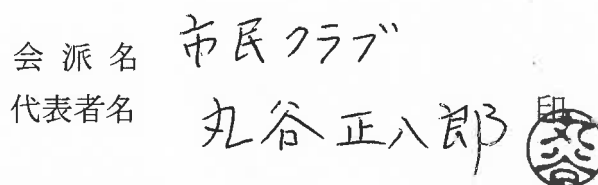 会派名 市民クラブ
代表者名 丸谷正八郎 印
丸谷